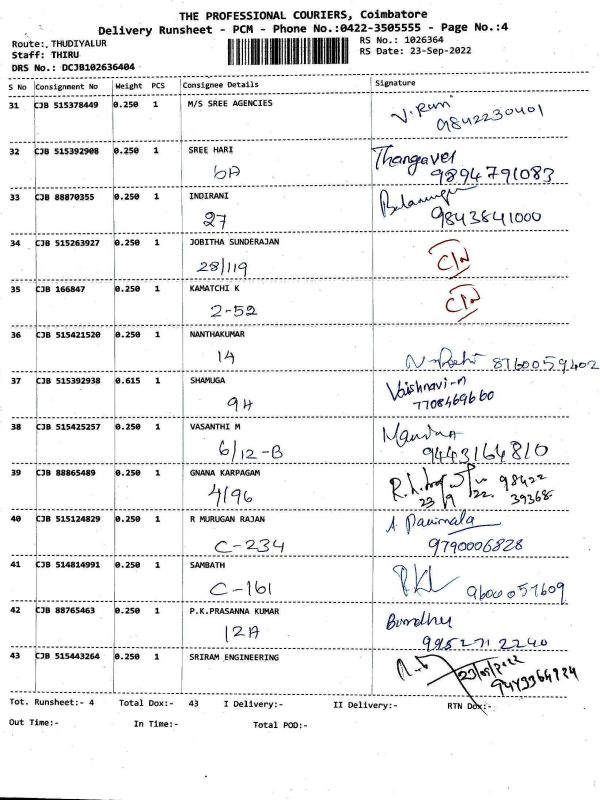 THE PROFESSIONAL COURIERS, Coimbatore
Delivery Runsheet - PCM - Phone No.:0422-3505555 - Page No.:4
Route:, THUDIYALUR
Staff: THIRU
DRS No.: DCJB102636404
RS No.: 1026364
RS Date: 23-Sep-2022
S No Consignment No Weight PCS Consignee Details Signature
31 CJB 515378449 0.250 1 M/S SREE AGENCIES
9842230401
32 CJB 515392908 0.250 1 SREE HARI Thangavel
6A 9894791083
33 CJB 88870355 0.250 1 INDIRANI
27 9843841000
34 CJB 515263927 0.250 1 JOBITHA SUNDERAJAN
28/119
35 CJB 166847 0.250 1 KAMATCHI K
2-52
36 CJB 515421520 0.250 1 NANTHAKUMAR
14 8760059402
37 CJB 515392938 0.615 1 SHAMUGA Vaishnavi-n
9A 7708469660
38 CJB 515425257 0.250 1 VASANTHI M
6/12-B 9443164810
39 CJB 88865489 0.250 1 GNANA KARPAGAM 98422
4/96 23/9/22 39368
40 CJB 515124829 0.250 1 R MURUGAN RAJAN
C-234 9790006828
41 CJB 514814991 0.250 1 SAMBATH
C-161 9600057609
42 CJB 88765463 0.250 1 P.K.PRASANNA KUMAR
12A 9952712240
43 CJB 515443264 0.250 1 SRIRAM ENGINEERING
23/09/2022
Tot. Runsheet:- 4 Total Dox:- 43 I Delivery:- II Delivery:- RTN Dox:-
Out Time:- In Time:- Total POD:-